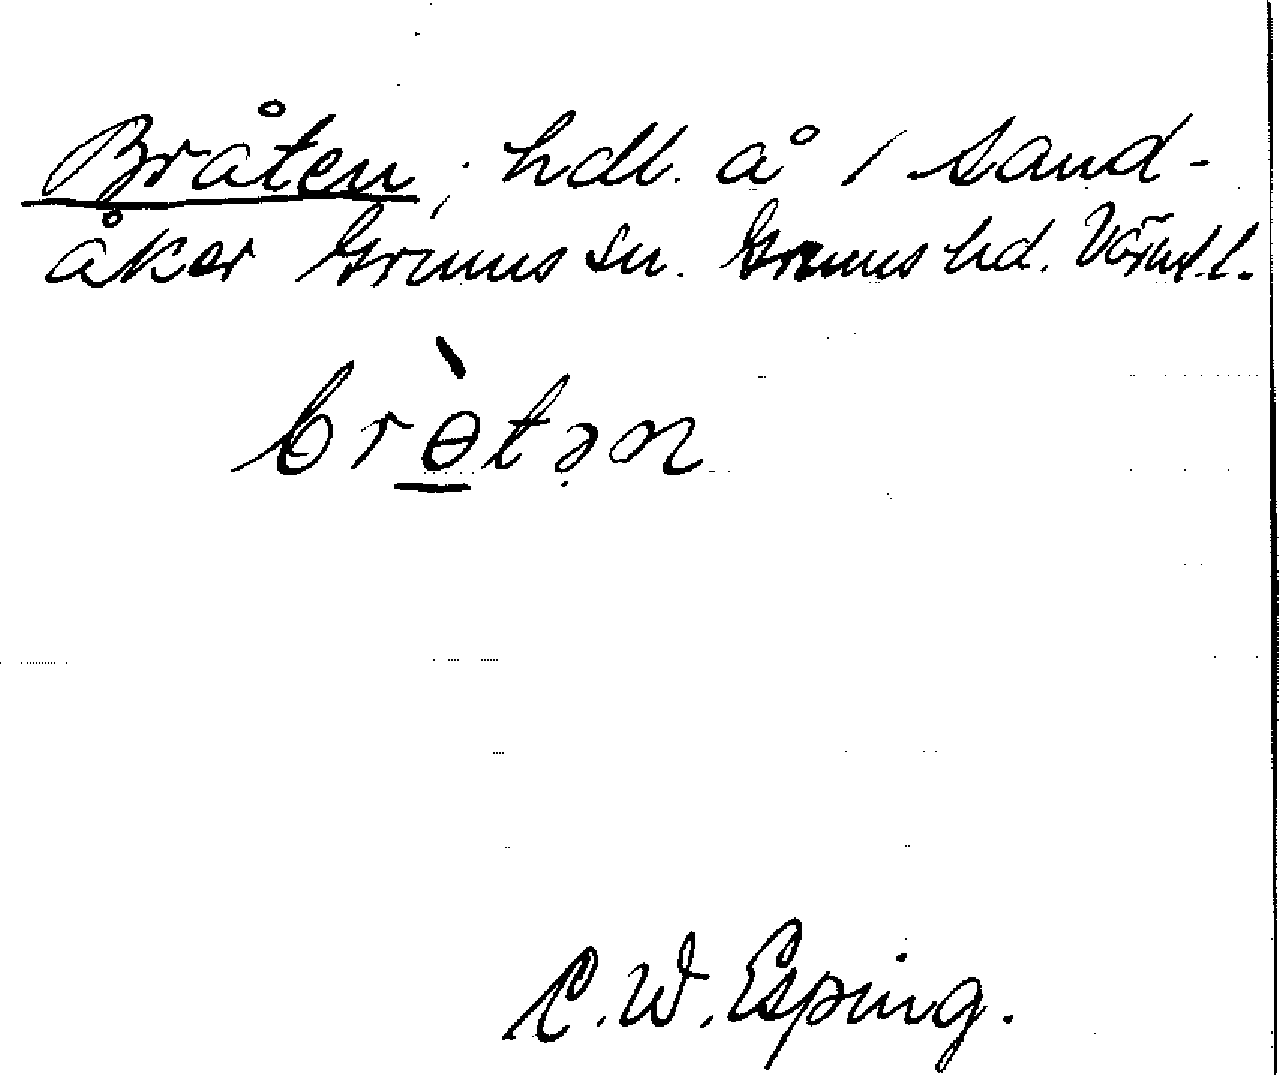 Bråten; hdl. å 1 Sand-
åker Grums sn. Grums hd. Värml.l.
brɵ̀tən
C.W. Esping.